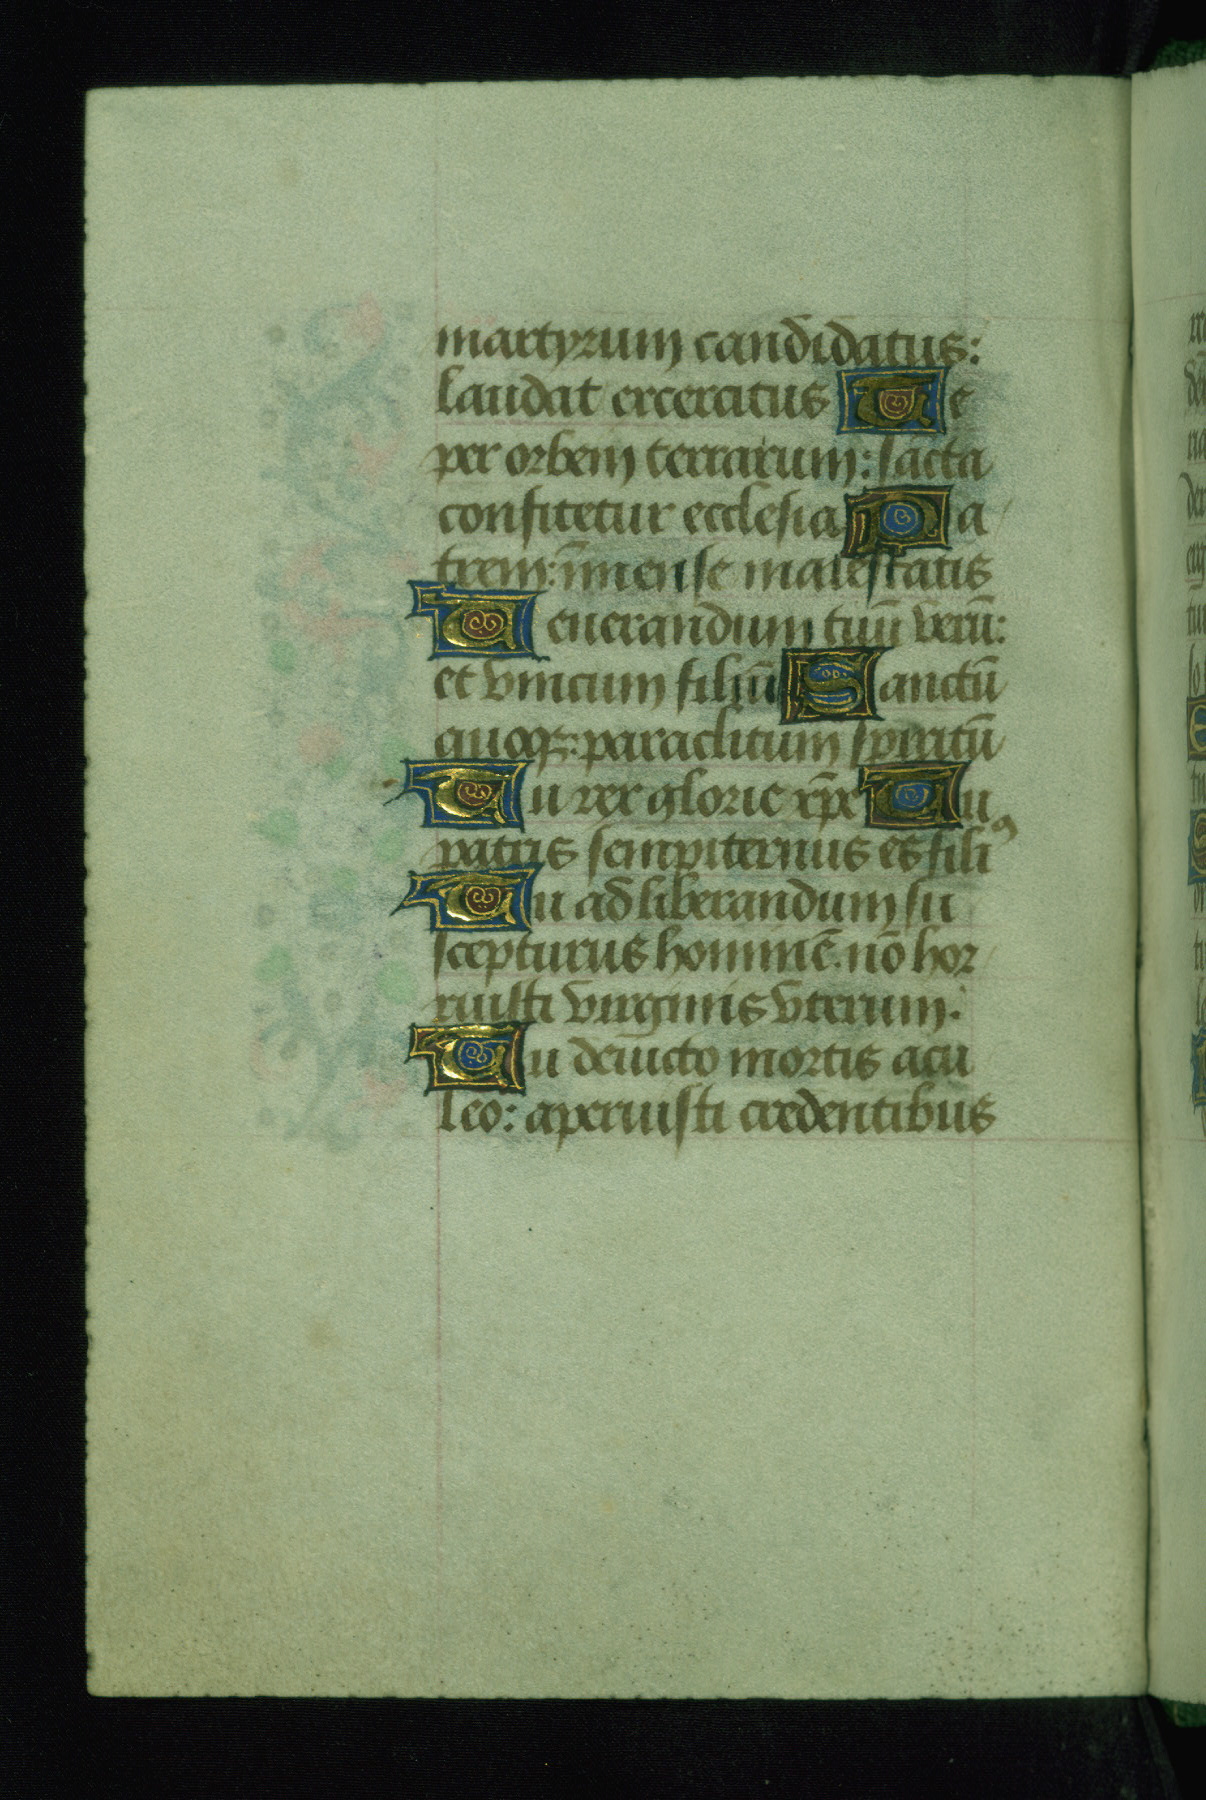 martyrum candidatus:
laudat excercitus Te
per orbem terrarum: sācta
confitetur ecclesia Pa
trem: īmense maiestatis
Uenerandum tuū verū:
et vnicum filiū Sanctū
quoqꝫ: paraclitum spiritū
Tu rex glorie xp̄e Tu
patris sempiternus es filiꝰ
Tu ad liberandum su
scepturus hominē. nō hor
ruisti virginis vterum.
Tu deuicto mortis acu
leo: aperuisti credentibus